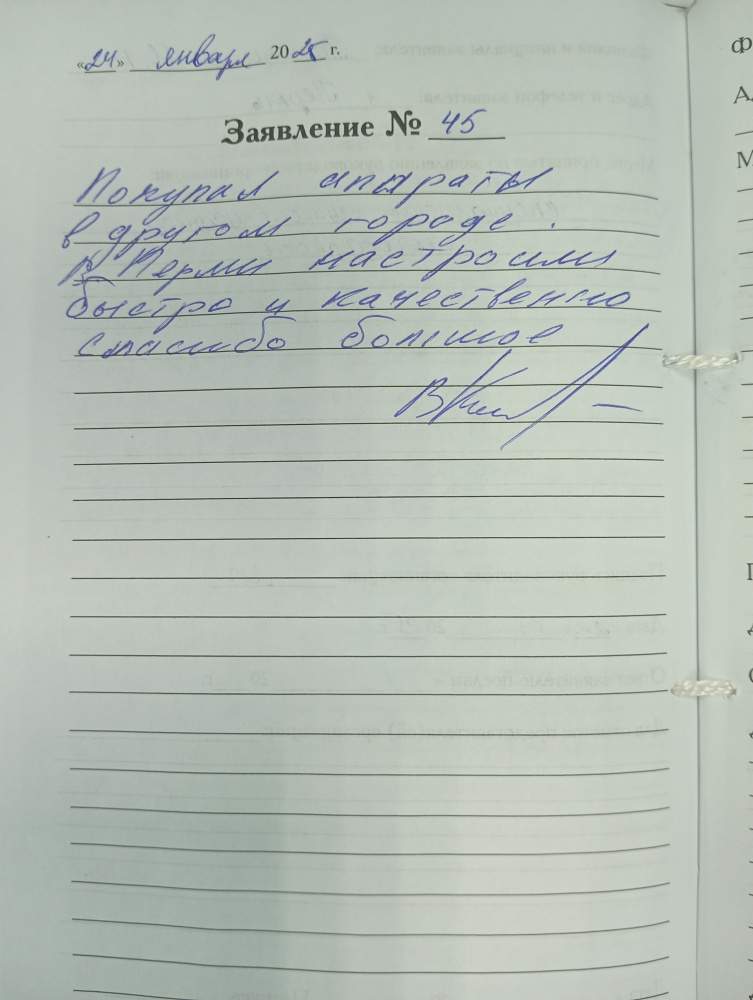 «24» января 2025 г.
Заявление № 45
Покупал апараты
в другом городе.
В Перми настроили
быстро и качественно
спасибо большое